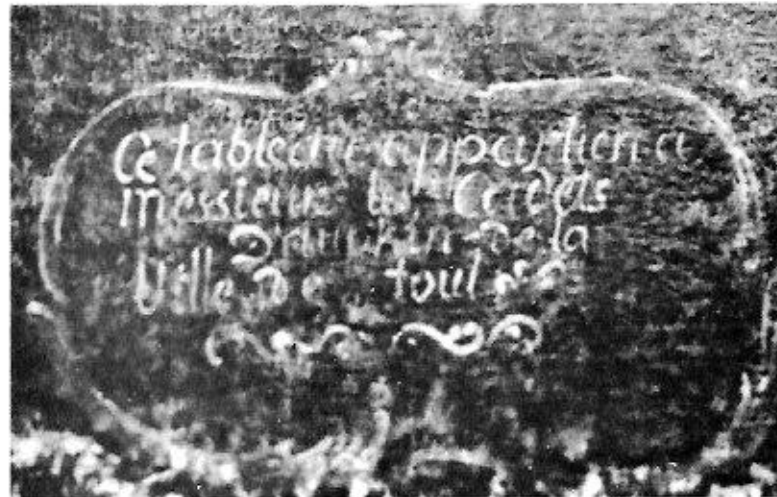 Ce tableau appartien a
messieurs les Cadets
de la
Ville De toul